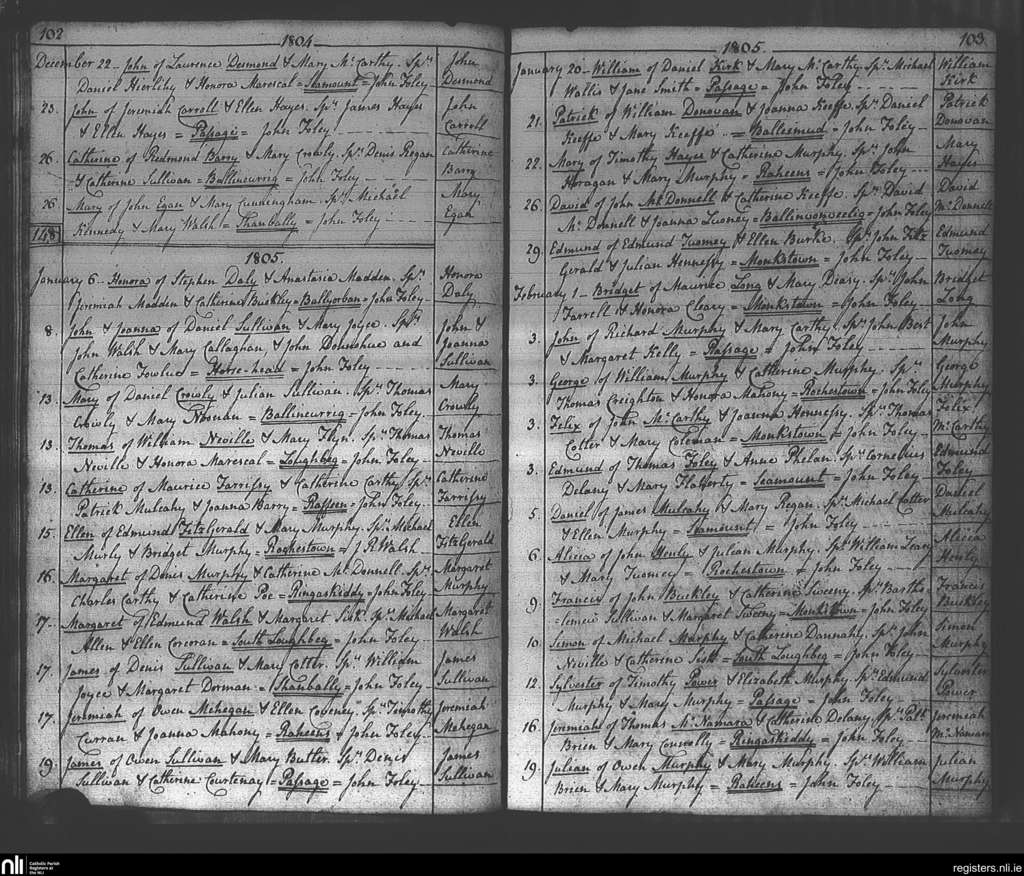 102
1804
December 22 - John of Laurence Desmond & Mary McCarthy. Sprs
Daniel Herlihy & Honora Marescal = Seamount = John Foley
John
Desmond
23. John of Jeremiah Carroll & Ellen Hayes. Sprs James Hayes
& Ellen Hayes = Passage = John Foley
John
Carroll
26. Catherine of Redmond Barry & Mary Crowly. Sprs Denis Regan
& Catherine Sullivan = Ballineurrig = John Foley
Catherine
Barry
26. Mary of John Egan & Mary Cunningham. Sprs Michael
Kennedy & Mary Walsh = Shanbally = John Foley
Mary
Egan
148
1805.
January 6 - Honora of Stephen Daly & Anastasia Madden. Sprs
Jeremiah Madden & Catherine Buckley = Ballyorban = John Foley
Honora
Daly
8. John & Joanna of Daniel Sullivan & Mary Joyce. Sprs
John Walsh & Mary Callaghan, & John Donoshue and
Catherine Fowlue = Horse-head = John Foley
John &
Joanna
Sullivan
13. Mary of Daniel Crowly & Julian Sullivan. Sprs Thomas
Crowly & Mary Noonan = Ballineurrig = John Foley
Mary
Crowly
13. Thomas of William Neville & Mary Flyn. Sprs Thomas
Neville & Honora Marescal = Loughbeg = John Foley
Thomas
Neville
13. Catherine of Maurice Farrissy & Catherine Carthy. Sprs
Patrick Mulcahy & Joanna Barry = Raffeen = John Foley
Catherine
Farrissy
15. Ellen of Edmund FitzGerald & Mary Murphy. Sprs Michael
Murly & Bridget Murphy = Rochestown = J. R. Walsh
Ellen
FitzGerald
16. Margaret of Denis Murphy & Catherine McDonnell. Sprs
Charles Carthy & Catherine Poe = Ringaskiddy = John Foley
Margaret
Murphy
17. Margaret of Edmund Walsh & Margaret Sisk. Sprs Michael
Allen & Ellen Corcoran = South Loughbeg = John Foley
Margaret
Walsh
17. James of Denis Sullivan & Mary Cotter. Sprs William
Joyce & Margaret Dorman = Shanbally = John Foley
James
Sullivan
17. Jeremiah of Owen Mehegan & Ellen Coveney. Sprs Timothy
Curran & Joanna Mahony = Raheens = John Foley
Jeremiah
Mehegan
19. James of Owen Sullivan & Mary Butler. Sprs Denis
Sullivan & Catherine Courtenay = Passage = John Foley
James
Sullivan
1805.
103
January 20 - William of Daniel Kirk & Mary McCarthy. Sprs Michael
Wallis & Jane Smith = Passage = John Foley
William
Kirk
21. Patrick of William Donovan & Joanna Keeffe. Sprs Daniel
Keeffe & Mary Keeffe = Balleemud = John Foley
Patrick
Donovan
22. Mary of Timothy Hayes & Catherine Murphy. Sprs John
Horagan & Mary Murphy = Raheens = John Foley
Mary
Hayes
26. David of John McDonnell & Catherine Keeffe. Sprs David
McDonnell & Joanna Looney = Ballinvonveelig = John Foley
David
McDonnell
29. Edmund of Edmund Tuomey & Ellen Burke. Sprs John Fitz
Gerald & Julian Hennessy = Monkstown = John Foley
Edmund
Tuomey
February 1 - Bridget of Maurice Long & Mary Deasy. Sprs John
Farrell & Honora Cleary = Monkstown = John Foley
Bridget
Long
3. John of Richard Murphy & Mary Carthy. Sprs John Bert
& Margaret Kelly = Passage = John Foley
John
Murphy
3. George of William Murphy & Catherine Murphy. Sprs
Thomas Creighton & Honora Mahony = Rochestown = John Foley
George
Murphy
3. Felix of John McCarthy & Joanna Hennessy. Sprs Thomas
Cotter & Mary Coleman = Monkstown = John Foley
Felix
McCarthy
3. Edmund of Thomas Foley & Anne Phelan. Sprs Cornelius
Delany & Mary Flaherty = Seamount = John Foley
Edmund
Foley
5. Daniel of James Mulcahy & Mary Regan. Sprs Michael Cotter
& Ellen Murphy = Seamount = John Foley
Daniel
Mulcahy
6. Alicia of John Henly & Julian Murphy. Sprs William Leary
& Mary Tuomey = Rochestown = John Foley
Alicia
Henly
9. Francis of John Buckley & Catherine Sweeny. Sprs Bartho-
=lomew Sullivan & Margaret Sweeny = Monkstown = John Foley
Francis
Buckley
10. Simon of Michael Murphy & Catherine Dannahy. Sprs John
Neville & Catherine Sisk = South Loughbeg = John Foley
Simon
Murphy
12. Sylvester of Timothy Power & Elizabeth Murphy. Sprs Edmund
Murphy & Mary Murphy = Passage = John Foley
Sylvester
Power
16. Jeremiah of Thomas McNamara & Catherine Delany. Sprs Patk
Brien & Mary Connolly = Ringaskiddy = John Foley
Jeremiah
McNamara
19. Julian of Owen Murphy & Mary Murphy. Sprs William
Brien & Mary Murphy = Raheens = John Foley
Julian
Murphy
nli
Catholic Parish
Registers at
the NLI
registers.nli.ie